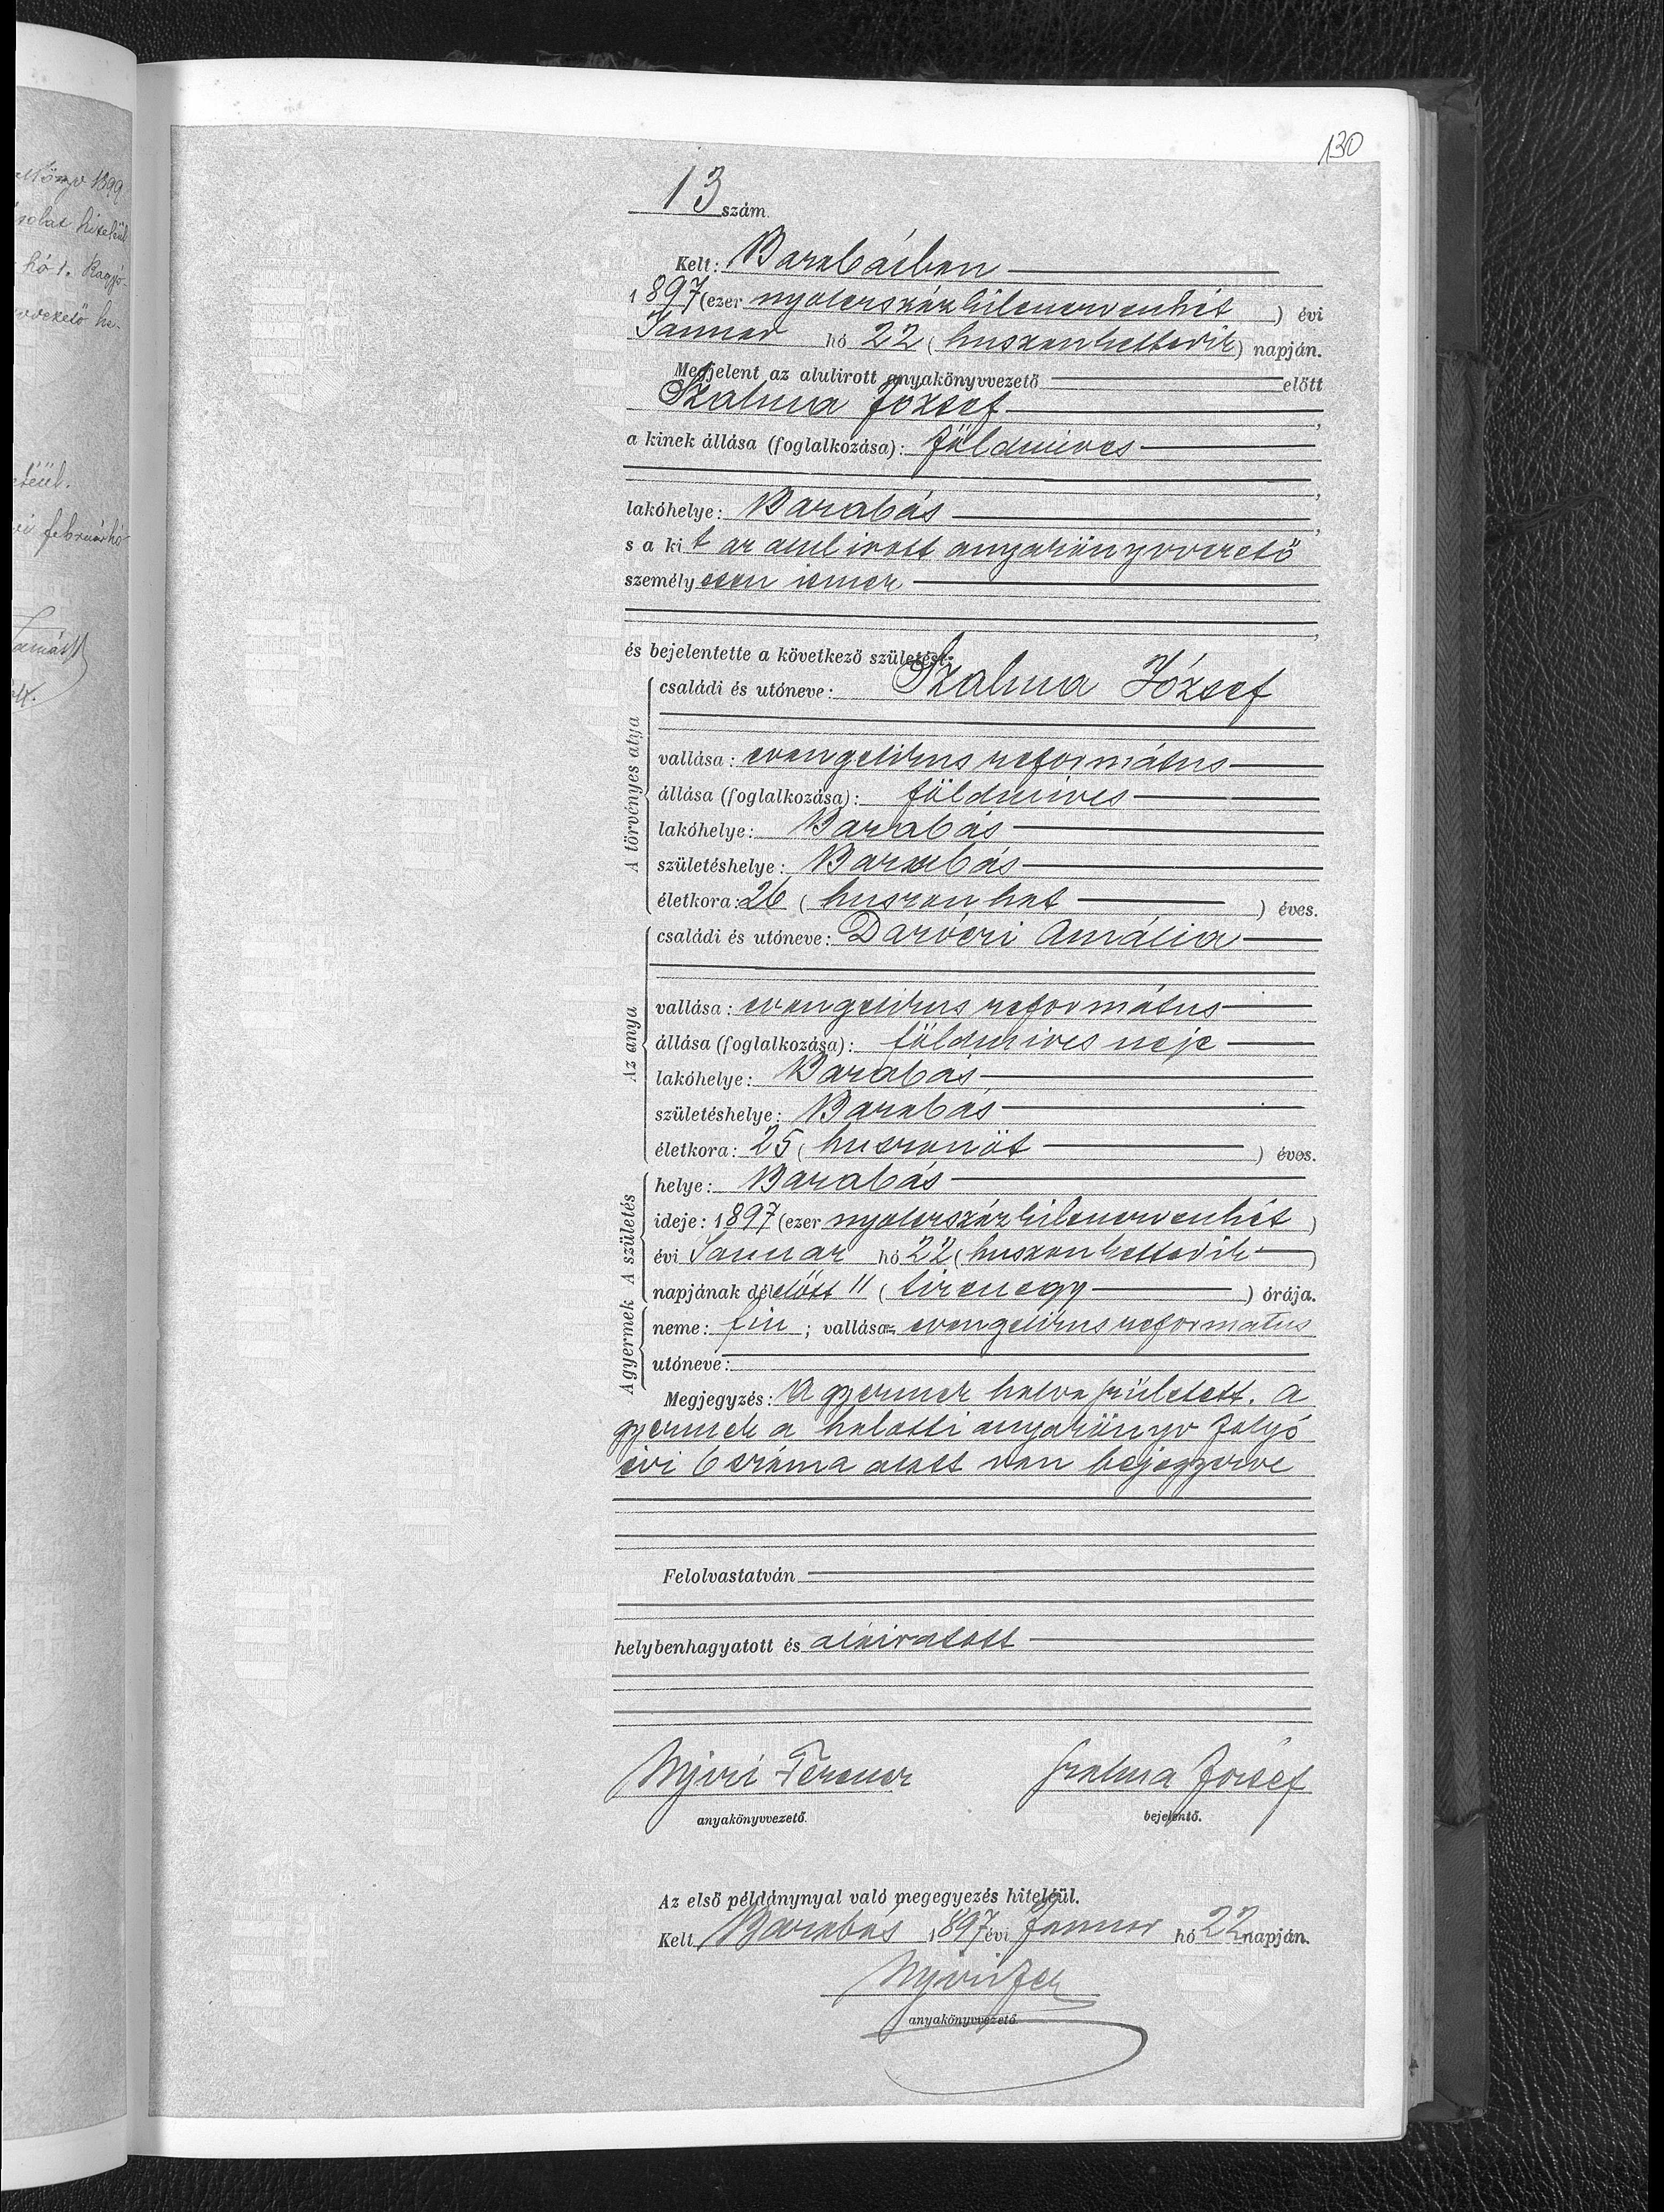 130
13 szám.
Kelt: Barabásban
1897 (ezer nyolcszázkilencvenhét) évi
Januar hó 22 (huszonkettedik) napján.
Megjelent az alulirott anyakönyvvezető előtt
Szalma József,
a kinek állása (foglalkozása): földmives
lakóhelye: Barabás,
s a kit az alulirott anyakönyvvezető
személyesen ismer
és bejelentette a következő születést:
A törvényes atya
családi és utóneve: Szalma József
vallása: evangelikus református
állása (foglalkozása): földmives
lakóhelye: Barabás
születéshelye: Barabás
életkora: 26 (huszonhat) éves.
Az anya
családi és utóneve: Daróczi Amália
vallása: evangelikus református
állása (foglalkozása): földmives neje
lakóhelye: Barabás
születéshelye: Barabás
életkora: 25 (huszonöt) éves.
A születés
helye: Barabás
ideje: 1897 (ezer nyolcszázkilencvenhét)
évi Januar hó 22 (huszonkettedik)
napjának délelőtt 11 (tizenegy) órája.
A gyermek
neme: fiu; vallása: evangelikus református
utóneve:
Megjegyzés: A gyermek halva született. A
gyermek a halotti anyakönyv folyó
évi 6 száma alatt van bejegyezve
Felolvastatván
helybenhagyatott és aláiratott
Nyiri Ferencz Szalma József
anyakönyvvezető. bejelentő.
Az első példánynyal való megegyezés hiteléül.
Kelt Barabás 1897 évi Januar hó 22 napján.
Nyiri Fer
anyakönyvvezető